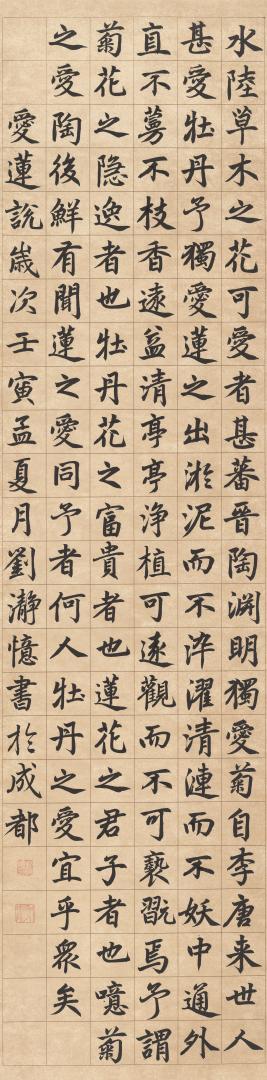 水陸草木之花可愛者甚蕃晉陶渊明獨愛菊自李唐来世人
甚愛牡丹予獨愛蓮之出淤泥而不淬濯清漣而不妖中通外
直不蔓不枝香遠益清亭亭浄植可遠觀而不可褻翫焉予謂
菊花之隐逸者也牡丹花之富貴者也蓮花之君子者也噫菊
之愛陶後鮮有聞蓮之愛同予者何人牡丹之愛宜乎衆矣
愛蓮說歲次壬寅孟夏月劉瀞憶書於成都